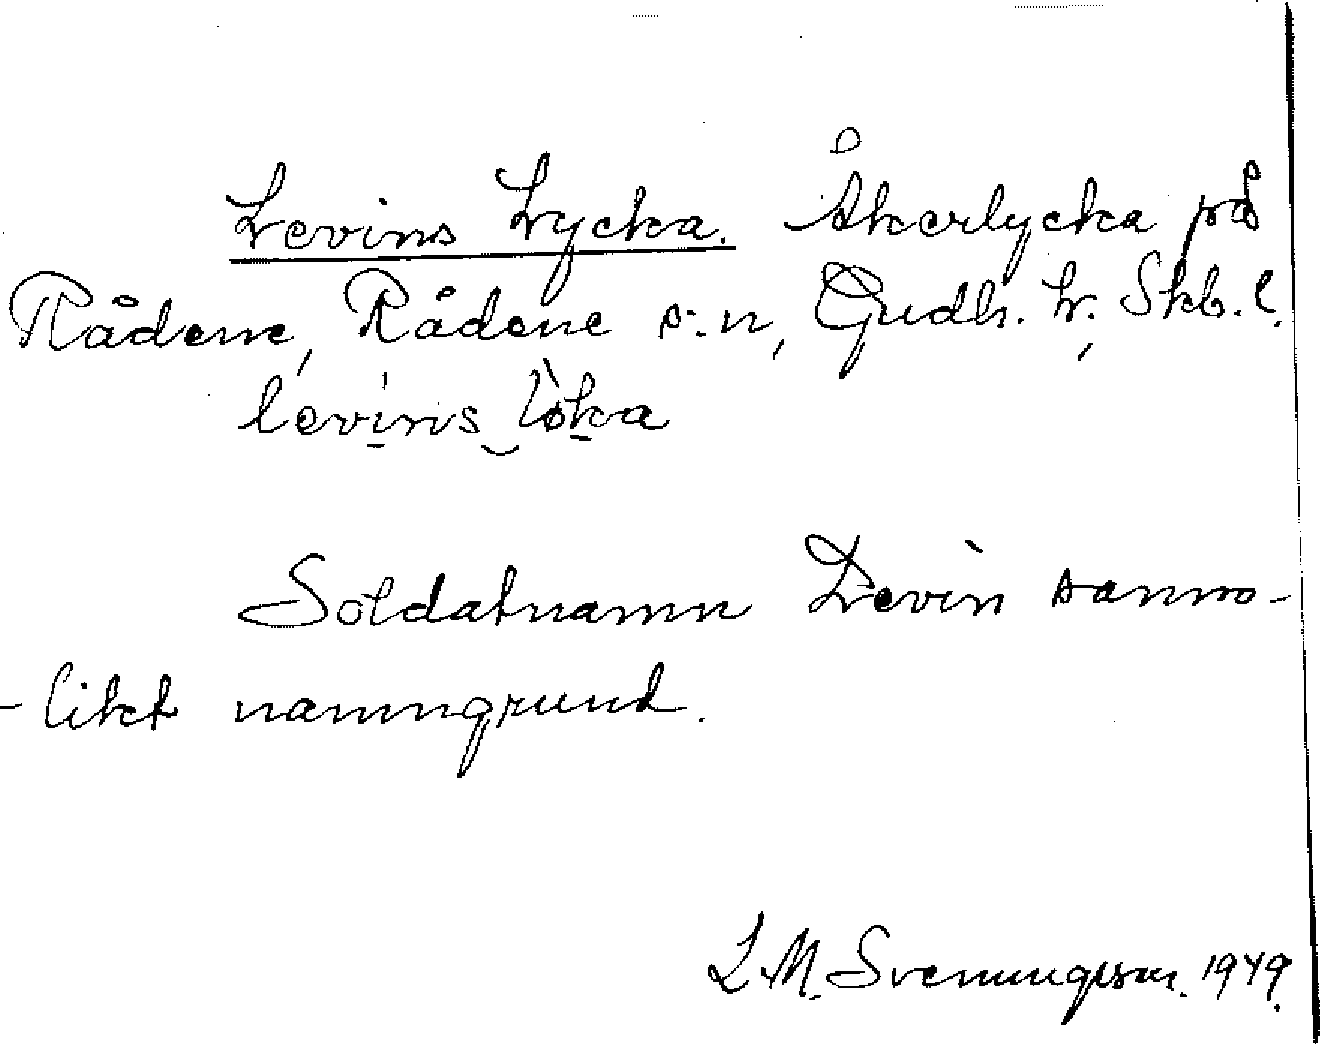 Levins Lycka. Åkerlycka på
Rådene, Rådene s:n, Gudh. h., Skb. l.
levins löka
Soldatnamn Levin sanno-
-likt namngrund.
L. M. Svenungsson. 1949.